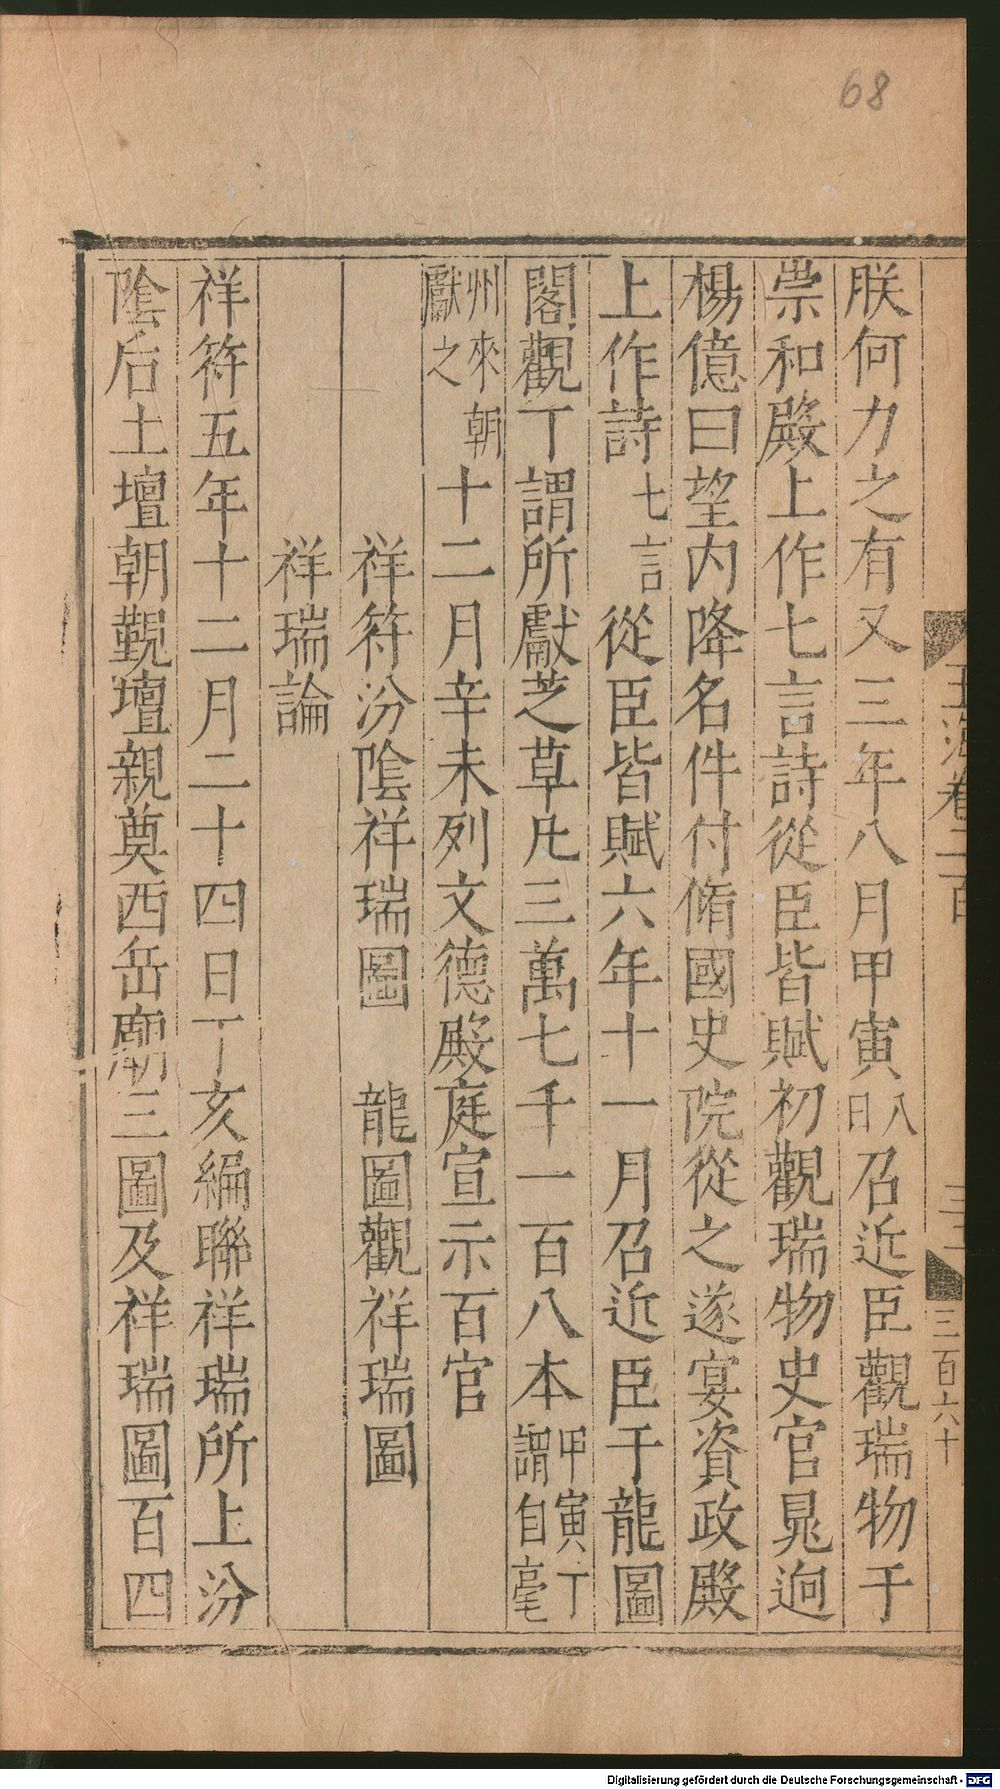 68
朕何力之有又三年八月甲寅八日召近臣觀瑞物于
崇和殿上作七言詩從臣皆賦初觀瑞物史官晁逈
楊億曰望内降名件付脩國史院從之遂宴資政殿
上作詩七言從臣皆賦六年十一月召近臣于龍圖
閣觀丁謂所獻芝草凡三萬七千一百八本甲寅丁謂自亳
州來朝獻之十二月辛未列文德殿庭宣示百官
祥符汾陰祥瑞圖 龍圖觀祥瑞圖
祥瑞論
祥符五年十二月二十四日丁亥編聯祥瑞所上汾
陰后土壇朝覲壇親奠西岳廟三圖及祥瑞圖百四
玉海卷二百
三百六十
Digitalisierung gefördert durch die Deutsche Forschungsgemeinschaft - DFG